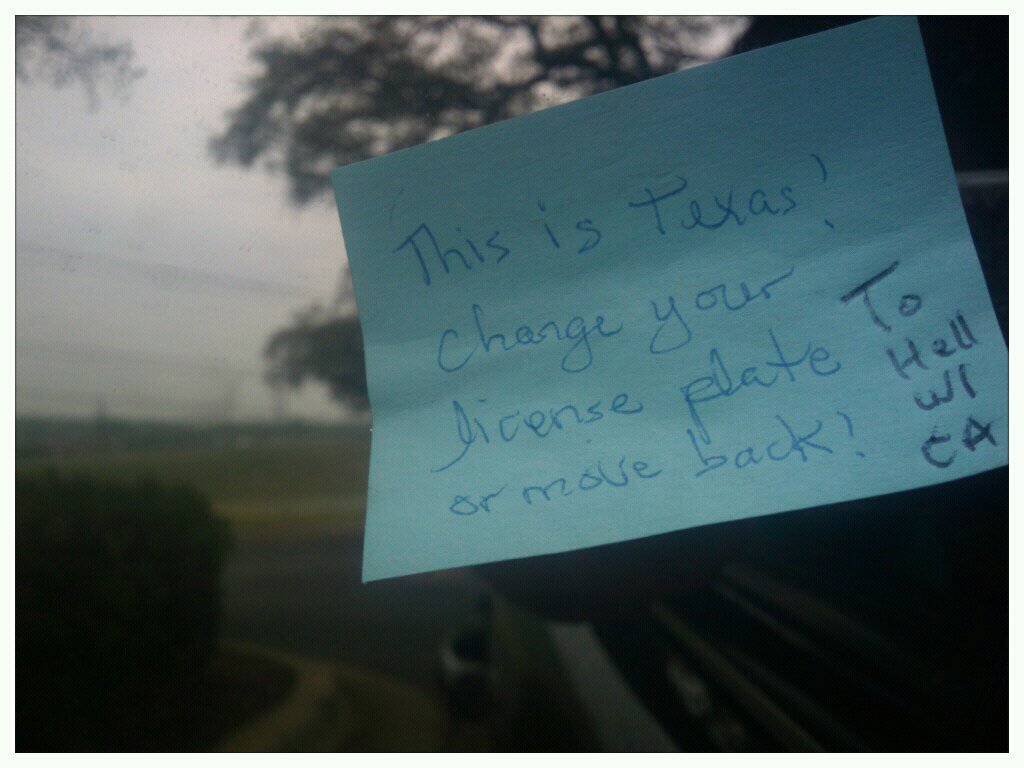 This is Texas!
Change your
license plate
or move back!
To
Hell
WI
CA